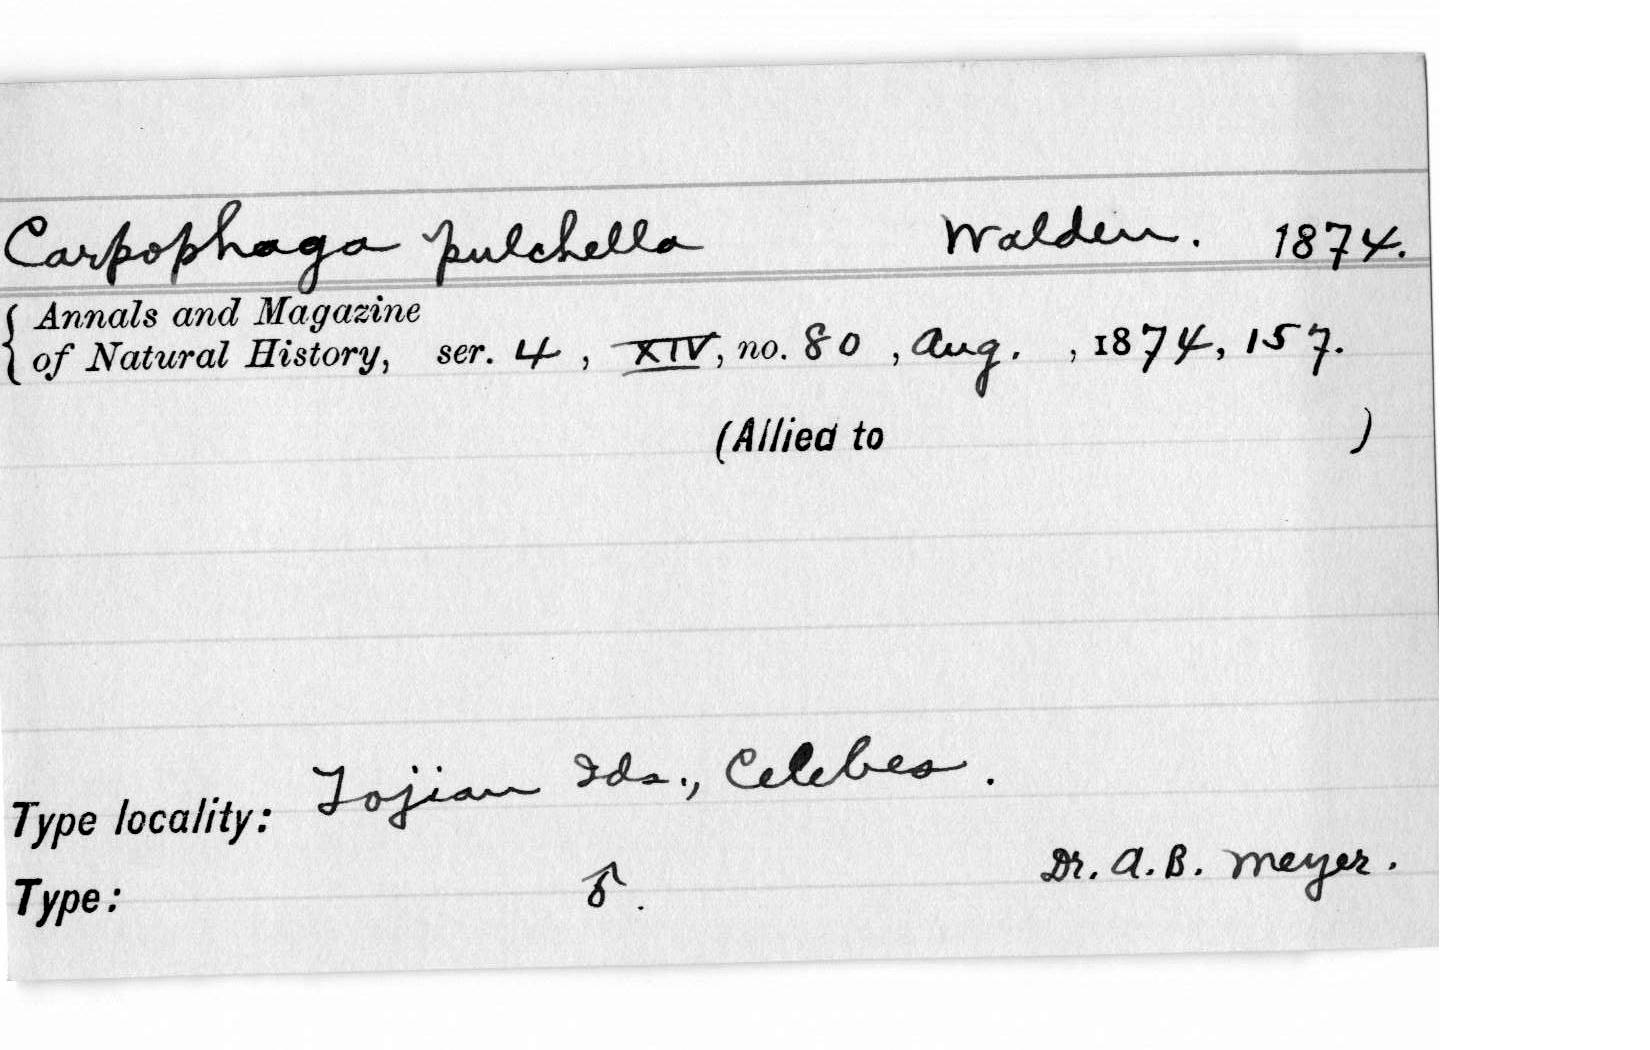 Carpophaga pulchella Walden. 1874.
Annals and Magazine
of Natural History, ser. 4, XIV, no. 80, Aug. , 1874, 157.
(Allied to )
Type locality: Tojian Ids., Celebes.
Type: ♂. Dr. A. B. Meyer.